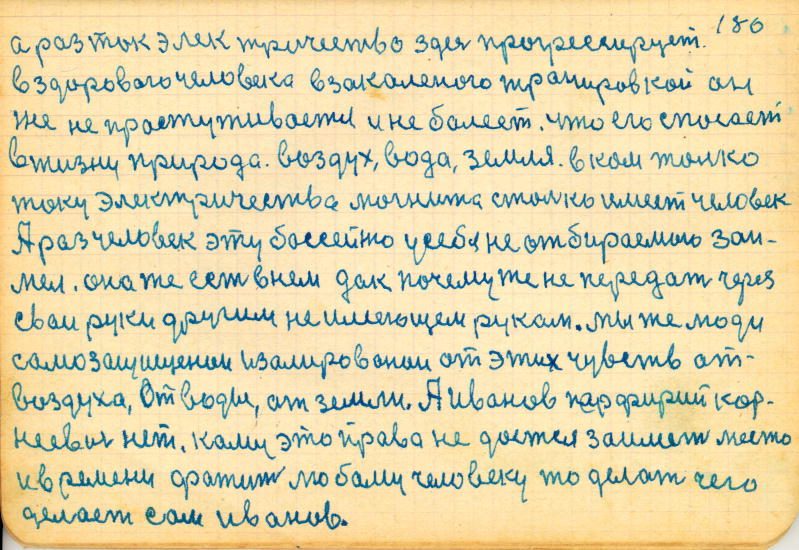 180
а раз ток электричество здея прогрессирует.
в здорового человека в закаленого транировкой он
же не простуживоется и не болеет. что его спосает
в жизни природа. воздух, вода, земля. в ком толко
току электричества могнита столко имеет человек
А раз человек эту боссейно у себя не отбираемою заи-
мел. она же ест в нем дак почему же не передат через
свои руки другим не имеющем рукам. мы же люди
самозащищенои изалированои от этих чувств от-
воздуха, От воды, от земли. А иванов парфирий кор-
неевич нет. каму это права не доется заимет место
и времени фатит любаму человеку то делат чего
делает сам иванов.